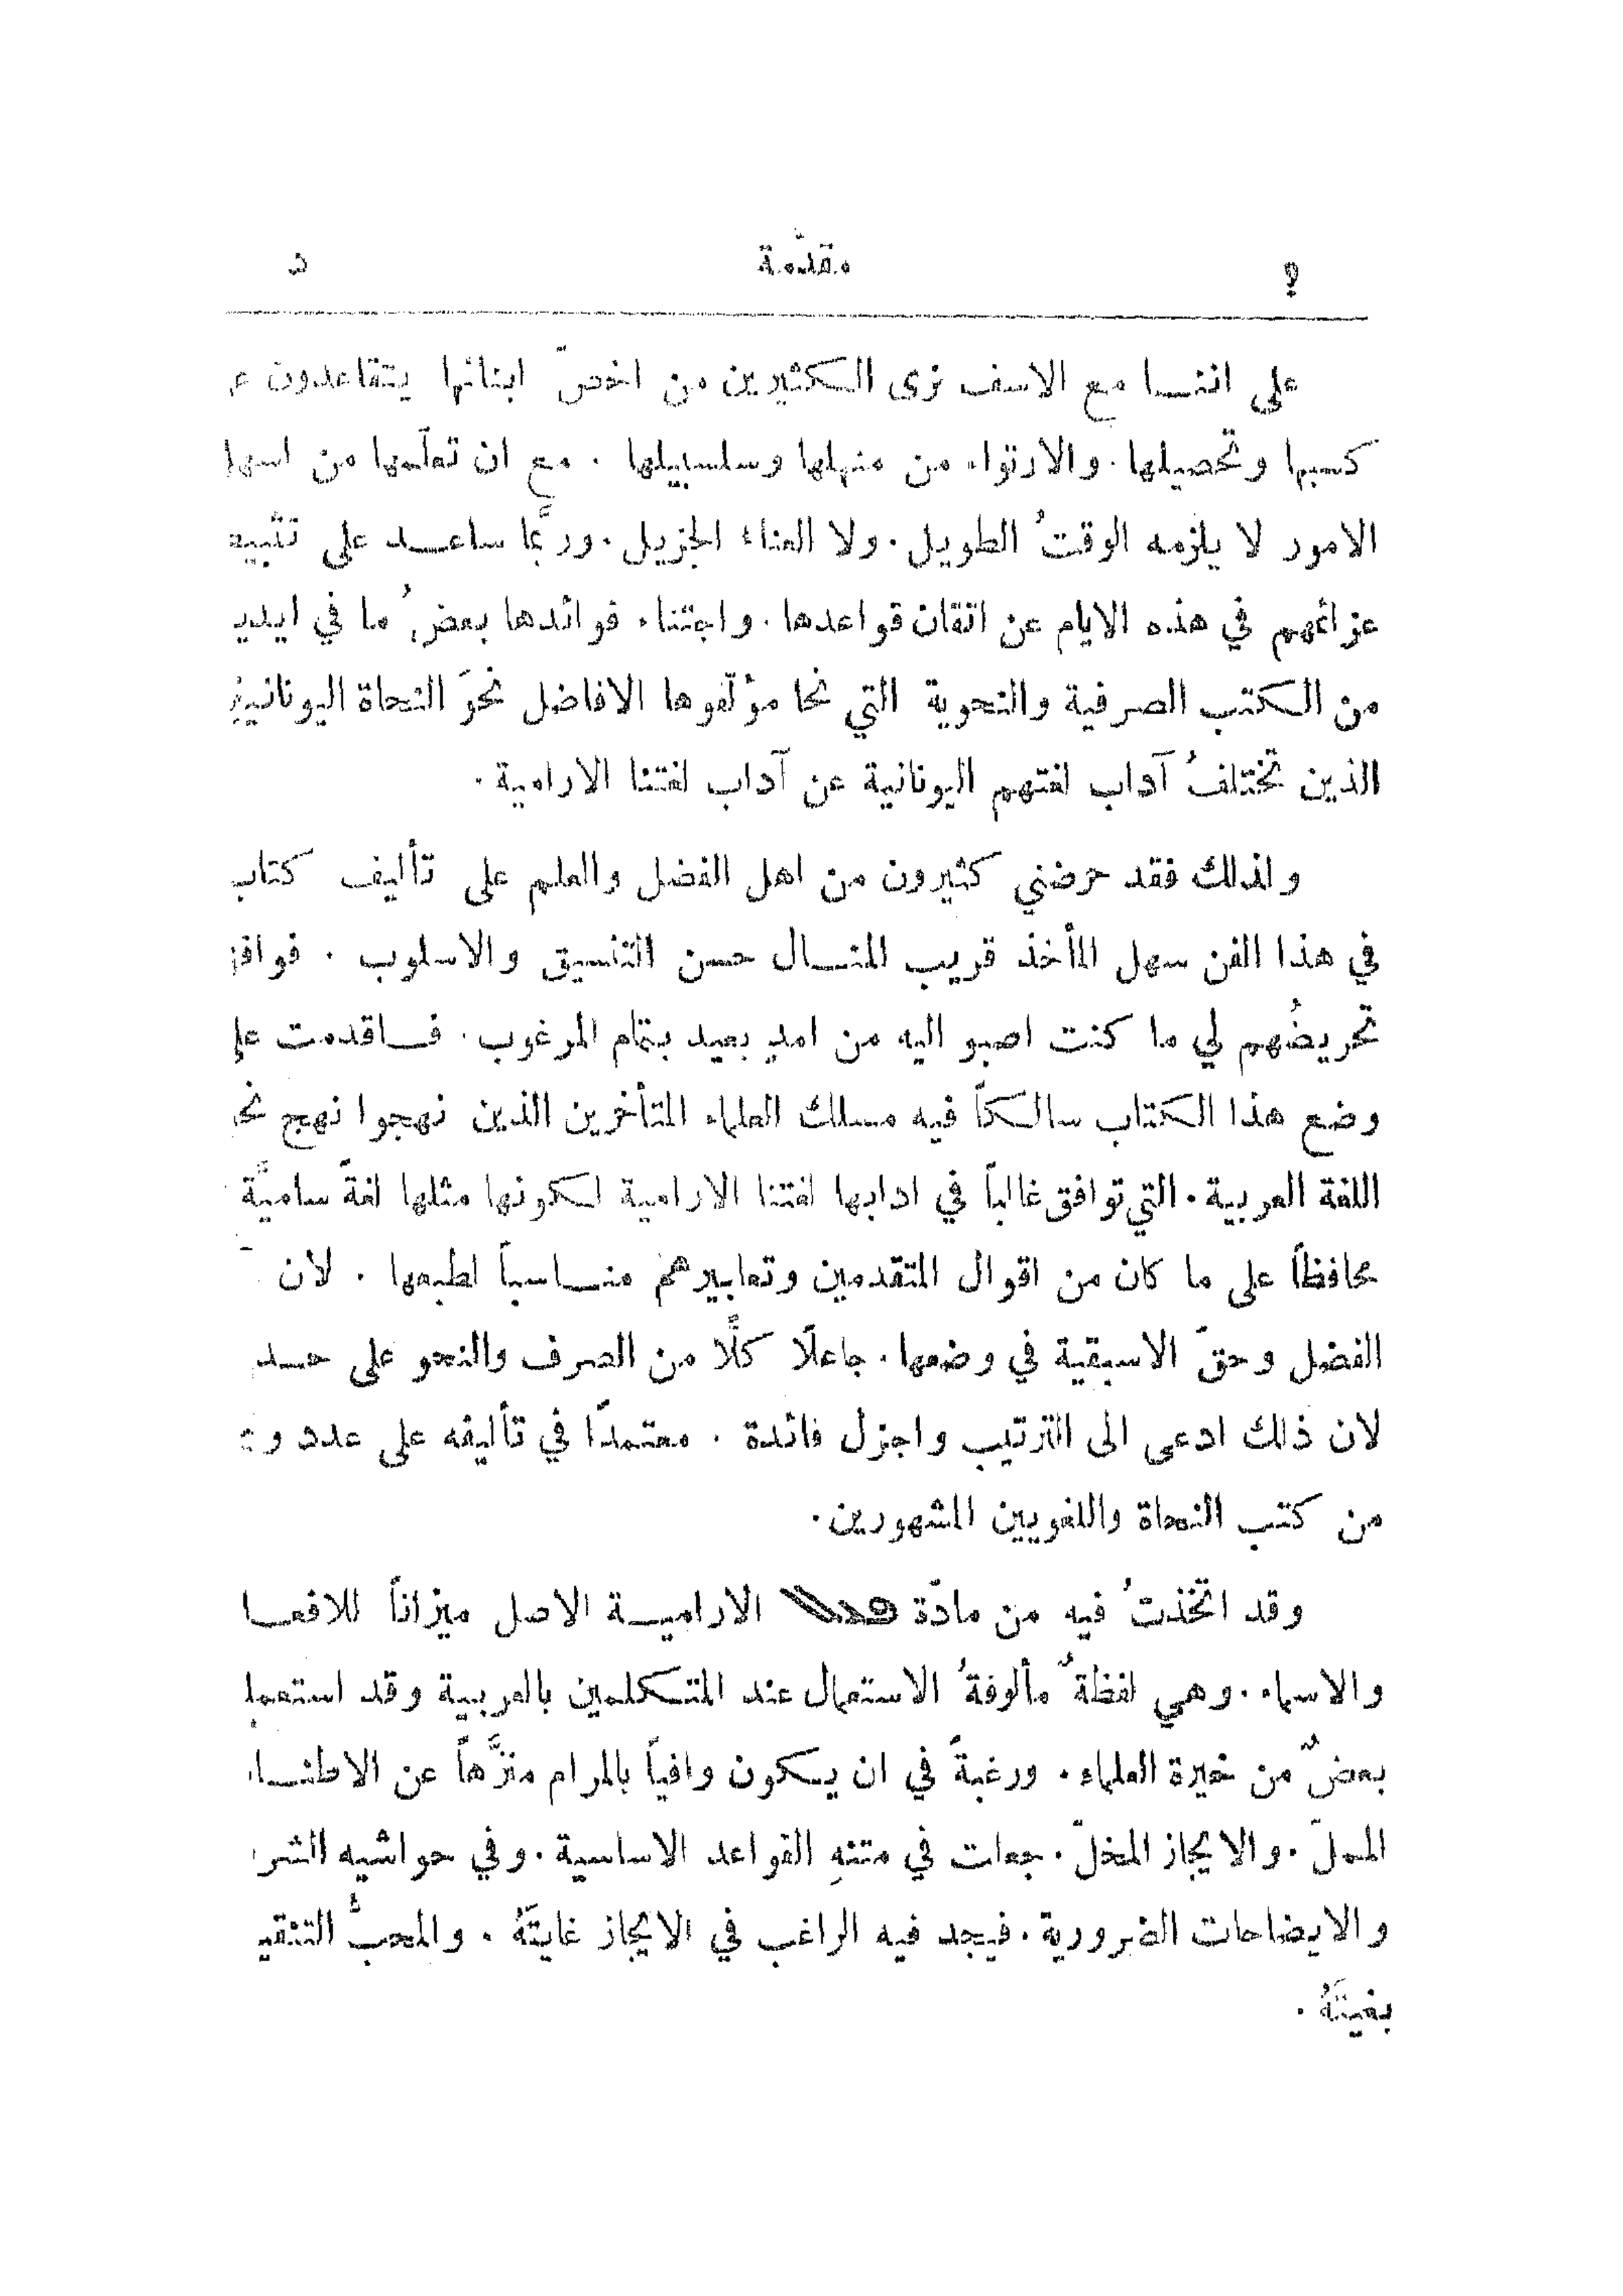 د مقدّمة ܕ
على اننــا مع الاسف نرى الكثيرين من اخصّ ابنائها يتقاعدون
كسبها وتحصيلها . والارتواء من منهلها وسلسبيلها . مع ان تعلّمها من
الامور لا يلزمه الوقتُ الطويل . ولا العناء الجزيل . وربَّما ساعــد على
عزائمهم في هذه الايام عن اتقان قواعدها . واجتناء فوائدها بعضُ ما في
من الكتب الصرفية والنحوية التي نحا مؤلّفوها الافاضل نحوَ النحاة
الذين تختلفُ آداب لغتهم اليونانية عن آداب لغتنا الارامية .
ولذلك فقد حرضني كثيرون من اهل الفضل والعلم على تأليف كتاب
في هذا الفن سهل المأخذ قريب المنــال حسن التنسيق والاسلوب .
تحريضُهم لي ما كنت اصبو اليه من امدٍ بعيد بتمام المرغوب . فــاقدمت
وضع هذا الكتاب سالكاً فيه مسلك العلماء المتأخرين الذين نهجوا نهج
اللغة العربية . التي توافق غالباً في ادابها لغتنا الارامية لكونها مثلها لغةً ساميَّة
محافظاً على ما كان من اقوال المتقدمين وتعابيرهم منــاسباً لطبعها . لان
الفضل وحقَّ الاسبقية في وضعها . جاعلًا كلًّا من الصرف والنحو على
لان ذلك ادعى الى الترتيب واجزل فائدة . معتمدًا في تأليفه على عدد
من كتب النحاة واللغويين المشهورين .
وقد اتّخذتُ فيه من مادّة ܦܥܠ الاراميــة الاصل ميزاناً
والاسماء . وهي لفظةٌ مألوفةُ الاستعمال عند المتكلمين بالعربية وقد
بعضٌ من خيرة العلماء . ورغبةً في ان يكون وافياً بالمرام منزَّهاً عن
المملّ . والايجاز المخلّ . جعلت في متنهِ القواعد الاساسية . وفي حواشيه
والايضاحات الضرورية . فيجد فيه الراغب في الايجاز غايتَهُ . والمحبُّ
بغيتَهُ .